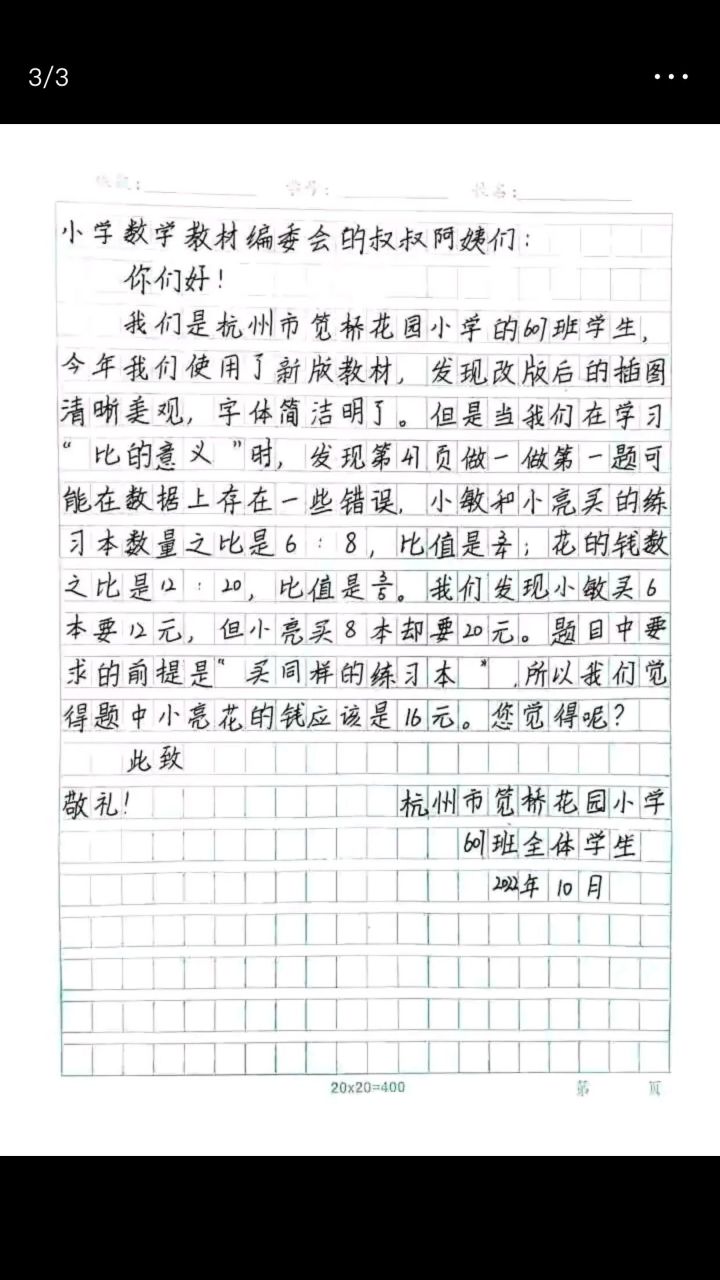 3/3
班级: 学号: 姓名:
小学数学教材编委会的叔叔阿姨们:
你们好!
我们是杭州市笕桥花园小学的607班学生,
今年我们使用了新版教材,发现改版后的插图
清晰美观,字体简洁明了。但是当我们在学习
“比的意义”时,发现第49页做一做第一题可
能在数据上存在一些错误,小敏和小亮买的练
习本数量之比是6:8,比值是3/4;花的钱数
之比是12:20,比值是3/5。我们发现小敏买6
本要12元,但小亮买8本却要20元。题目中要
求的前提是“买同样的练习本”,所以我们觉
得题中小亮花的钱应该是16元。您觉得呢?
此致
敬礼! 杭州市笕桥花园小学
607班全体学生
2022年10月
20x20=400 第 页